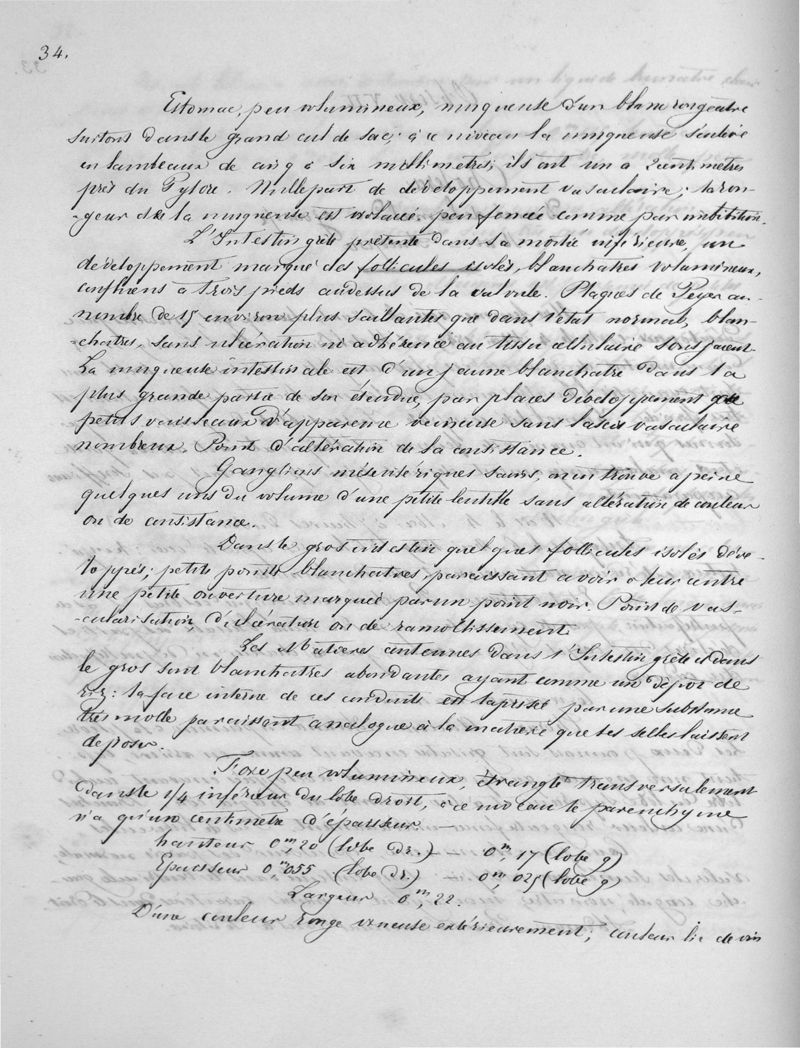 34.
Estomac, peu volumineux, muqueuse d'un blanc rougeâtre
surtout dans le grand cul de sac; à ce niveau la muqueuse s'enlève
en lambeaux de cinq à six millimètres; ils ont un à 2 centimètres
près du Pylore. Nulle part de développement vasculaire; la rou-
-geur de la muqueuse est violacée, peu foncée comme par imbibition.
L'Intestin grêle présente dans sa moitié inférieure, un
développement marqué des follicules isolés, blanchâtres volumineux,
confluens à trois pieds audessus de la valvule. Plaques de Peyer au
nombre de 15 environ plus saillantes que dans l'état normal, blan-
-châtres, sans ulcération ni adhérence au tissu cellulaire sous jacent.
La muqueuse intestinale est d'un jaune blanchâtre dans la
plus grande partie de son étendue, par places développement de
petits vaisseaux d'apparence veineuse sans lacis vasculaire
nombreux. Point d'altération de la consistance.
Ganglions mésentériques sains, on en trouve à peine
quelques uns du volume d'une petite lentille sans altération de couleur
ou de consistance.
Dans le gros intestin quelques follicules isolés déve-
loppés; petits points blanchâtres, paraissant avoir à leur centre
une petite ouverture marquée par un point noir. Point de vas-
-cularisation, d'ulcération ou de ramollissement.
Les Matières contenues dans l'Intestin grêle et dans
le gros sont blanchâtres abondantes ayant comme un dépôt de
riz: la face interne de ces conduits est tapissée par une substance
très molle paraissant analogue à la matière que les selles laissent
déposer.
Foie peu volumineux, étranglé transversalement
dans le 1/4 inférieur du lobe droit, à ce niveau le parenchyme
n'a qu'un centimètre d'épaisseur.
hauteur 0m,20 (lobe dr.) — 0m,17 (lobe g)
Epaisseur 0,m055 (lobe dr.) — 0m,025 (lobe g)
Largeur 0m,22.
D'une couleur rouge vineuse extérieurement; couleur lie de vin